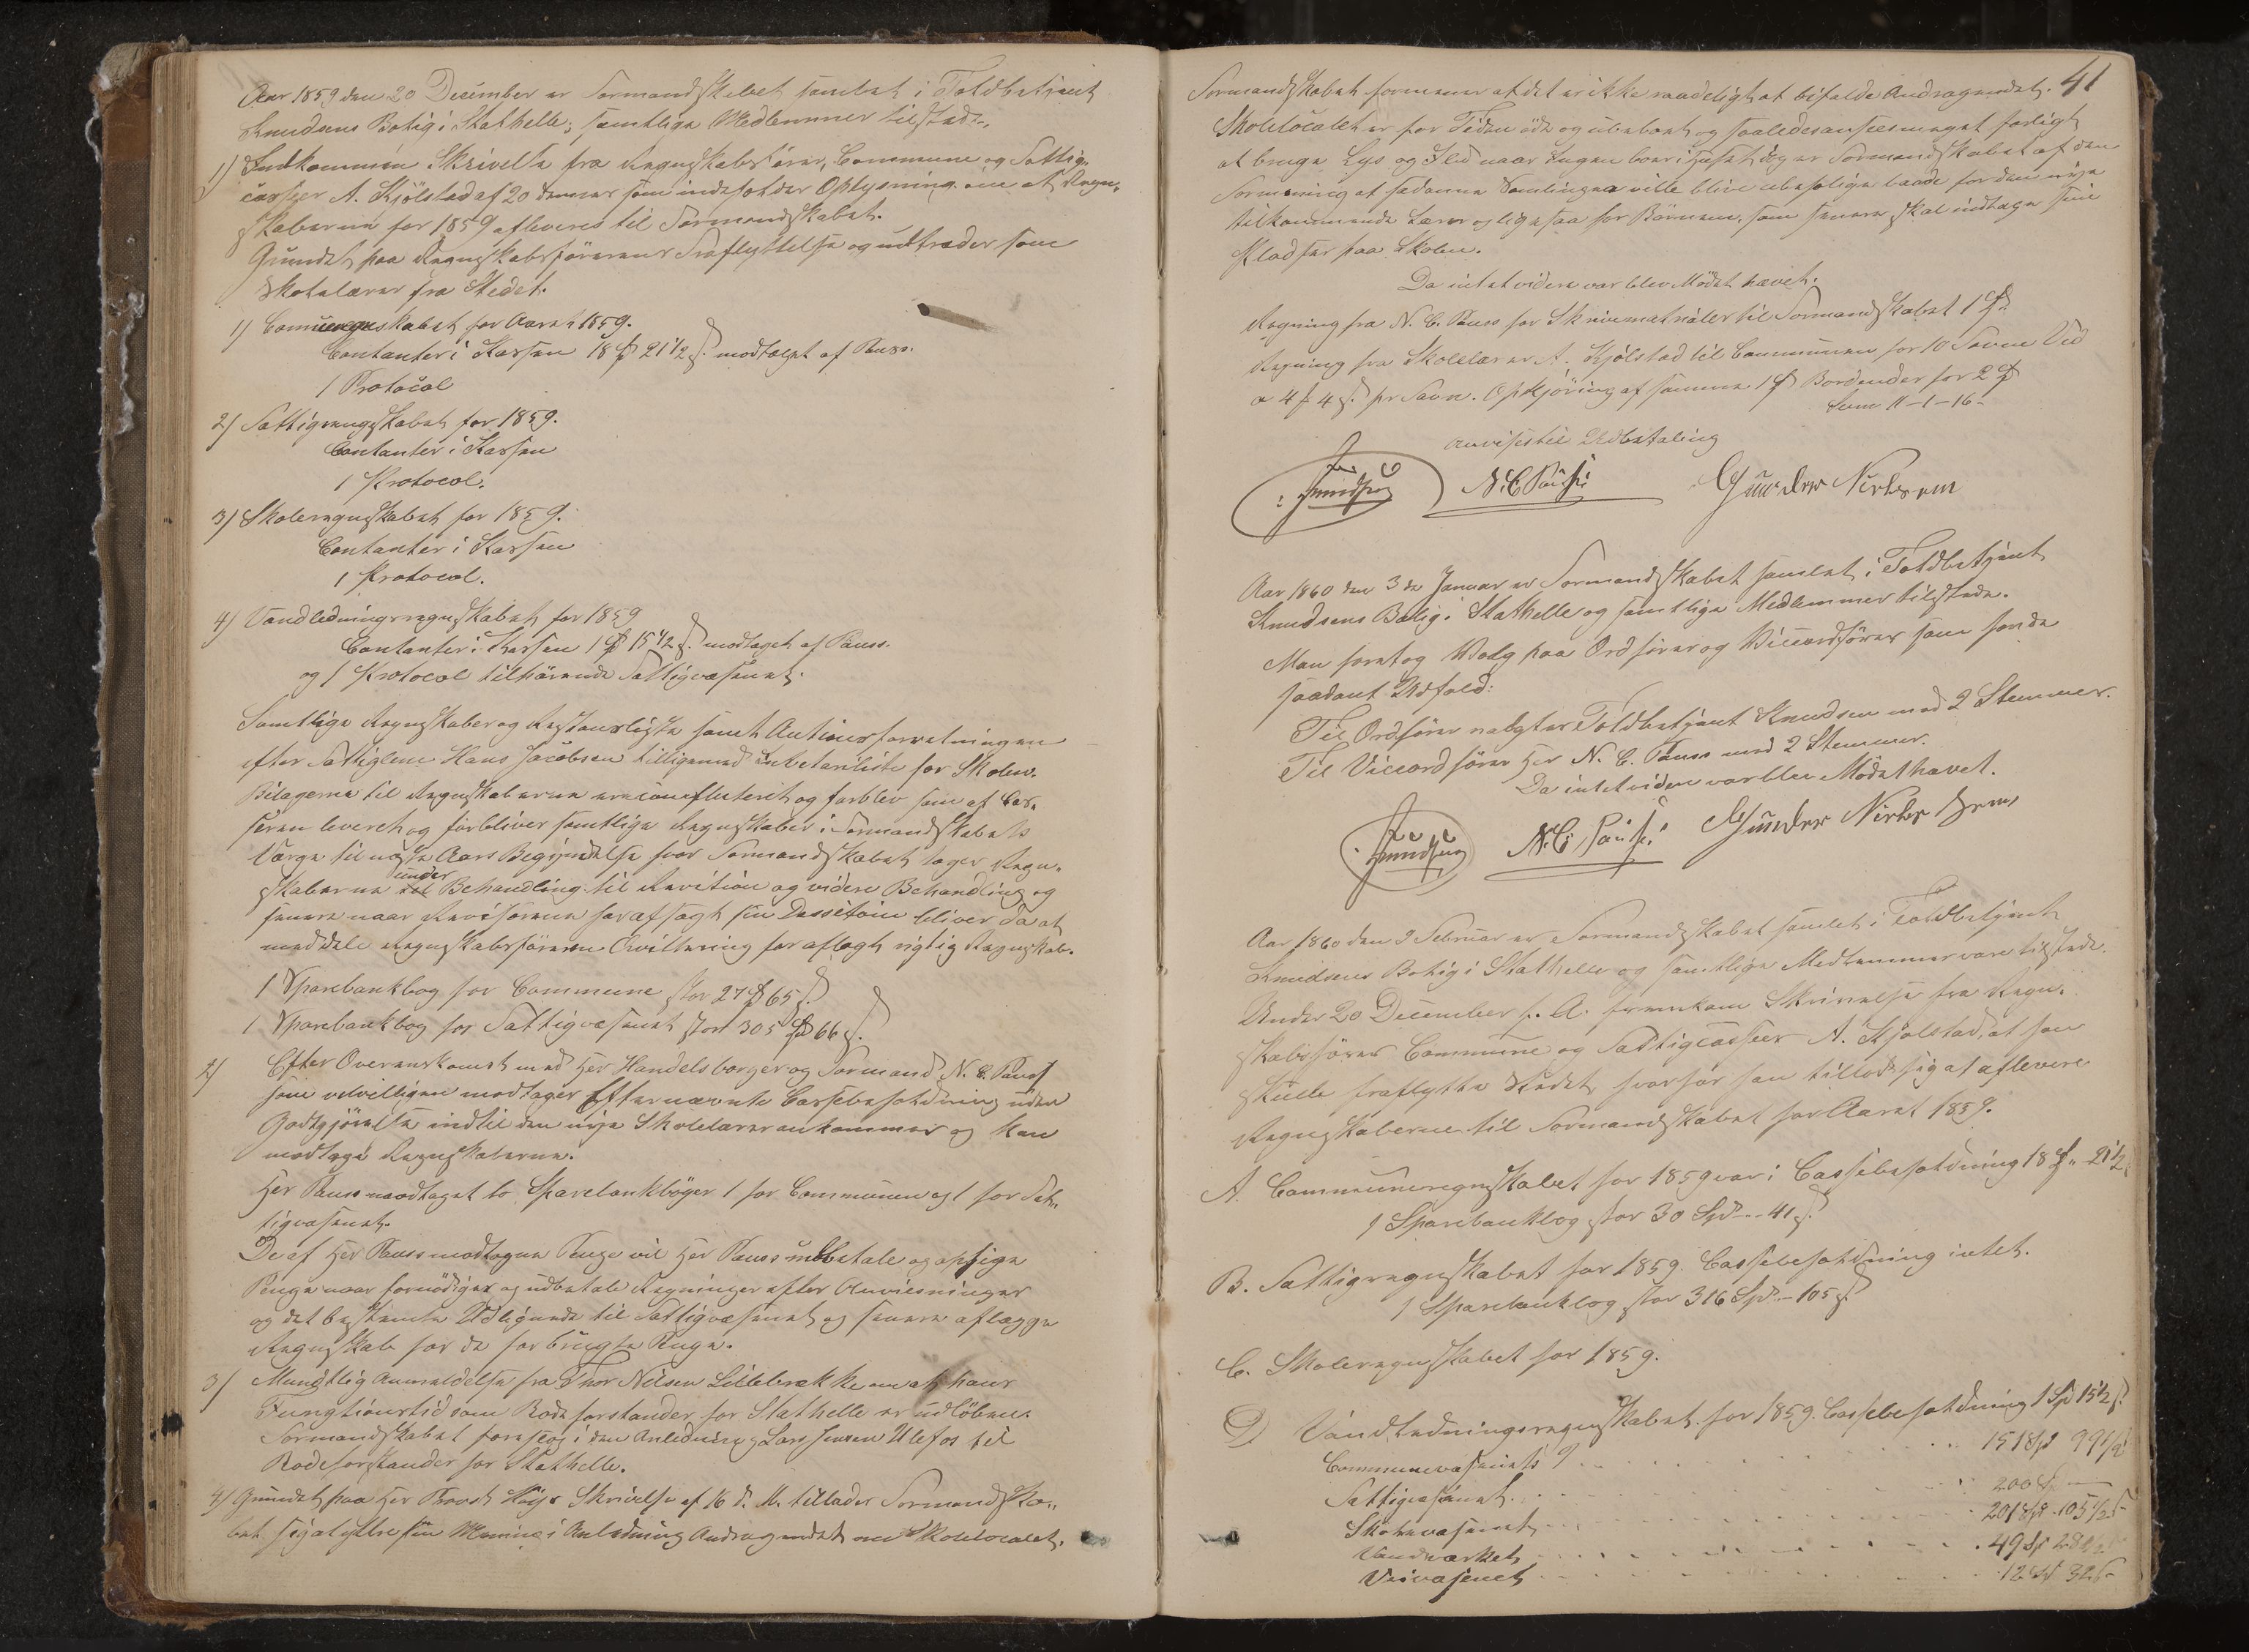 Aar 1859 den 20 December er Formandskabet samlet i Toldbetjent
Knudsens Bolig i Stathelle; samtlige Medlemmer tilstede.
1) Indkommen Skrivelse fra Regnskabsfører, Commune og Fattig-
casseer A. Kjölstad af 20 dennes som indeholder Oplysning om at Regn-
skaberne for 1859 afleveres til Formandskabet.
Grundet paa Regnskabsförerens Fraflyttelse og udtræder som
Skolelærer fra Stedet.
1) Communeregnskabet for Aaret 1859.
Contanter i Kassen 18 Spd 21 1/2 s. modtaget af Pauss.
1 Protocol
2) Fattigregnskabet for 1859.
Contanter i Kassen
1 Protocol.
3) Skoleregnskabet for 1859.
Contanter i Kassen
1 Protocol.
4) Vandledningsregnskabet for 1859
Contanter i Kassen 1 Spd 15 1/2 s. modtaget af Pauss.
og 1 Protocol tilhörende Fattigvæsenet.
Samtlige Regnskaber og Restanseliste samt Auctionsforretningen
efter Fattiglem Hans Jacobsen tilligemed Inventariliste for Skolen.
Bilagerne til Regnskaberne ere og forblev som af Cas-
seren leveret og forbliver samtlige Regnskaber i Formandskabets
Værge til næste Aars Begyndelse hvor Formandskabet tager Regn-
skaberne under Behandling til Revition og videre Behandling og
senere naar Revisorerne har afsagt sin Dessition bliver da at
meddele Regnskabsföreren Qvittering for aflagt rigtig Regnskab.
1 Sparebankbog for Commune stor 27 Spd 65 s.
1 Sparebankbog for Fattigvæsenet stor 305 Spd 66 s.
2) Efter Overenskomst med Her Handelsborger og Formand N. C. Pauss
som velvilligen modtager Efternævnte Cassebeholdning uden
Godtgjörelse indtil den nye Skolelærer ankommer og kan
modtage Regnskaberne.
Her Pauss modtaget to Sparebankböger 1 for Communen og 1 for Fat-
tigvæsenet.
De af Her Pauss modtagne Penge vil Her Pauss udbetale og opsige
Penge naar fornödiges og udbetale Regninger efter Anvisninger
og det bestemte Udlignede til Fattigvæsenet og senere aflægge
Regnskab for de forbrugte Penge.
3) Mundtlig Anmeldelse fra Thor Nilsen Lillebrække om at hans
Fungtionstid som Rodeforstander for Stathelle er udlöben.
Formandskabet foreslog i den Anledning Lars Jensen Ulefos til
Rodeforstander for Stathelle.
4) Grundet paa Her Provst Høys Skrivelse af 16 d. M. tillader Formandska-
bet sig at yttre sin Mening i Anledning Andragendet om Skolelocalet.
41
Formandskabet formener at det er ikke raadeligt at bifalde Andragendet.
Skolelocalet er for Tiden öde og ubeboet og saaledes ansees meget farligt
at bruge Lys og Ild naar Ingen boer i Huset, og er Formandskabet af den
Formening at sadanne Samlinger ville blive ubehelige baade for den nye
tilkommende Lærer og ligesaa for Börnene, som senere skal indtage sine
Pladser paa Skolen.
Da intet videre var blev Mödet hævet.
Regning fra N. C. Pauss for Skrivematrialer til Formandskabet 1 Spd
Regning fra Skolelærer A. Kjölstad til Communen for 10 Favne Ved
a 4 4 s. pr Favn. Opkjöring af samme 1 Spd Bordender for 2 Spd
Sum 11-1-16-
anvises til Udbetaling
Knudsen N. C. Pauss Gunder Nielsen
Aar 1860 den 3de Januar er Formandskabet samlet i Toldbetjent
Knudsens Bolig i Stathelle og samtlige Medlemmer tilstede.
Man foretog Valg paa Ordförer og Viceordförer som havde
saadant Udfald:
Til Ordförer valgtes Toldbetjent Knudsen med 2 Stemmer.
Til Viceordförer Her N. C. Pauss med 2 Stemmer.
Da intet videre var blev Mödet hævet.
Knudsen N. C. Pauss Gunder Nielsen
Aar 1860 den 9 Februar er Formandskabet samlet i Toldbetjent
Knudsens Bolig i Stathelle og samtlige Medlemmer vare tilstede.
Under 20 December f. A. fremkom Skrivelse fra Regn-
skabsförer Commune og Fattigcasseer A. Kjölstad, at han
skulle fraflytte Stedet hvorfor han tillod sig at aflevere
Regnskaberne til Formandskabet for Aaret 1859.
A. Communeregnskabet for 1859 var i Cassebeholdning 18 Spd 21 1/2
1 Sparebankbog stor 30 Spd -- 41 s.
B. Fattigregnskabet for 1859. Cassebeholdning intet.
1 Sparebankbog stor 316 Spd - 105 s.
C. Skoleregnskabet for 1859.
D) Vandledningsregnskabet for 1859. Cassebeholdning 1 Spd 15 1/2 s.
Communevæsenets 151 Spd 99 1/2
Fattigvæsenet 200 Spd
Skolevæsenet 201 Spd 105 1/2 s
Vandværket 49 Spd
Veivæsenet 12 Spd 32 s